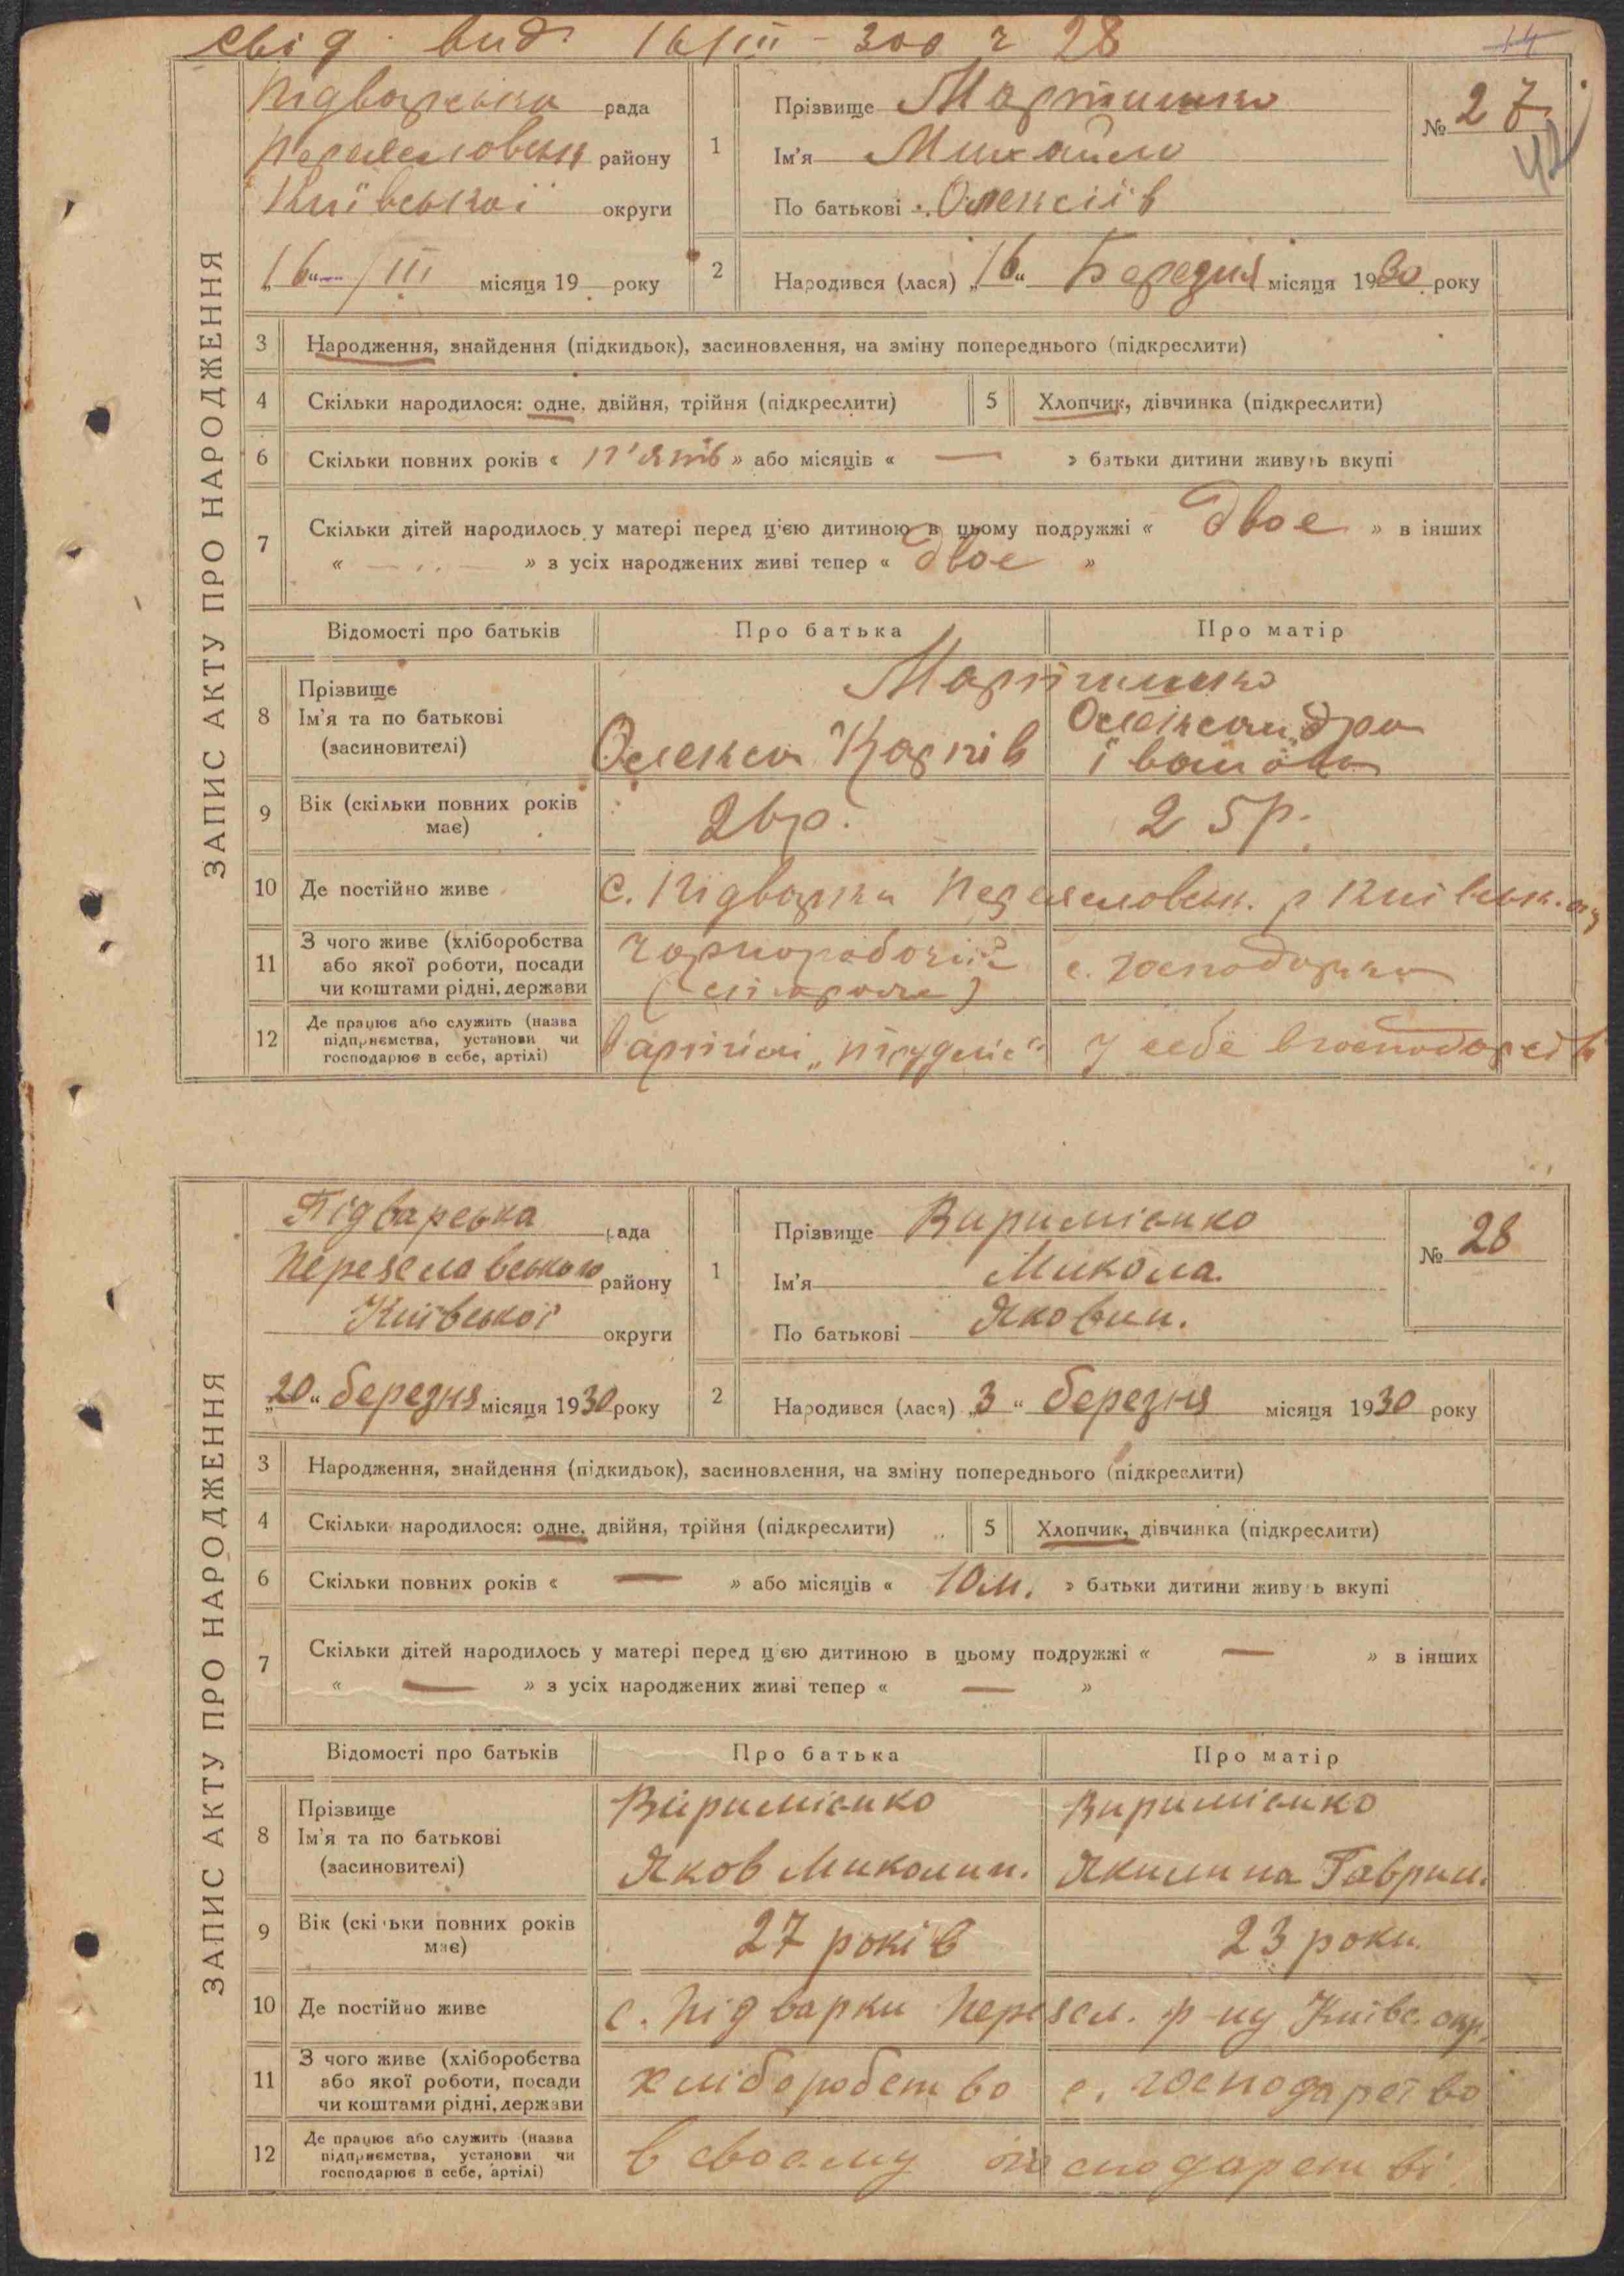 свід. вид. 16/III - 300 ч 28
14
ЗАПИС АКТУ ПРО НАРОДЖЕННЯ
Підварська рада
району
Київської округи
„16“ III місяця 19 року
1
Прізвище Мартишко
Ім'я Михайло
По батькові Олексіїв
№ 27
2
Народився (лася) „16“ Березня місяця 1930 року
3 Народження, знайдення (підкидьок), засиновлення, на зміну попереднього (підкреслити)
4 Скільки народилося: одне, двійня, трійня (підкреслити) 5 Хлопчик, дівчинка (підкреслити)
6 Скільки повних років « п'ять » або місяців « — » батьки дитини живуть вкупі
7 Скільки дітей народилось у матері перед цією дитиною в цьому подружжі « двое » в інших
« — » з усіх народжених живі тепер « двое »
Відомості про батьків Про батька Про матір
8 Прізвище
Ім'я та по батькові
(засновителі)
Мартишко
Олекса Карпів
Олександра
Іванова
9 Вік (скільки повних років має) 26 р. 25 р.
10 Де постійно живе с. Підварки Переяславськ. р Київськ. окр
11 З чого живе (хліборобства
або якої роботи, посади
чи коштами рідні, держави
чорноробочий
с. господарка
12 Де працює або служить (назва
підприємства, установи чи
господарює в себе, артілі)
в артілі
у себе в господарстві
ЗАПИС АКТУ ПРО НАРОДЖЕННЯ
Підварська рада
Переяславського району
Київської округи
„20“ березня місяця 1930 року
1
Прізвище
Ім'я Микола
По батькові Якович.
№ 28
2
Народився (лася) „3“ березня місяця 1930 року
3 Народження, знайдення (підкидьок), засиновлення, на зміну попереднього (підкреслити)
4 Скільки народилося: одне, двійня, трійня (підкреслити) 5 Хлопчик, дівчинка (підкреслити)
6 Скільки повних років « — » або місяців « 10 м. » батьки дитини живуть вкупі
7 Скільки дітей народилось у матері перед цією дитиною в цьому подружжі « — » в інших
« — » з усіх народжених живі тепер « — »
Відомості про батьків Про батька Про матір
8 Прізвище
Ім'я та по батькові
(засиновителі)
Яков Миколин.
Якилина Гаврил.
9 Вік (скільки повних років має) 27 років 23 роки
10 Де постійно живе с. Підварки Переясл. р-ну Київс. окр.
11 З чого живе (хліборобства
або якої роботи, посади
чи коштами рідні, держави
хліборобство
с. господарство
12 Де працює або служить (назва
підприємства, установи чи
господарює в себе, артілі)
в своєму господарстві